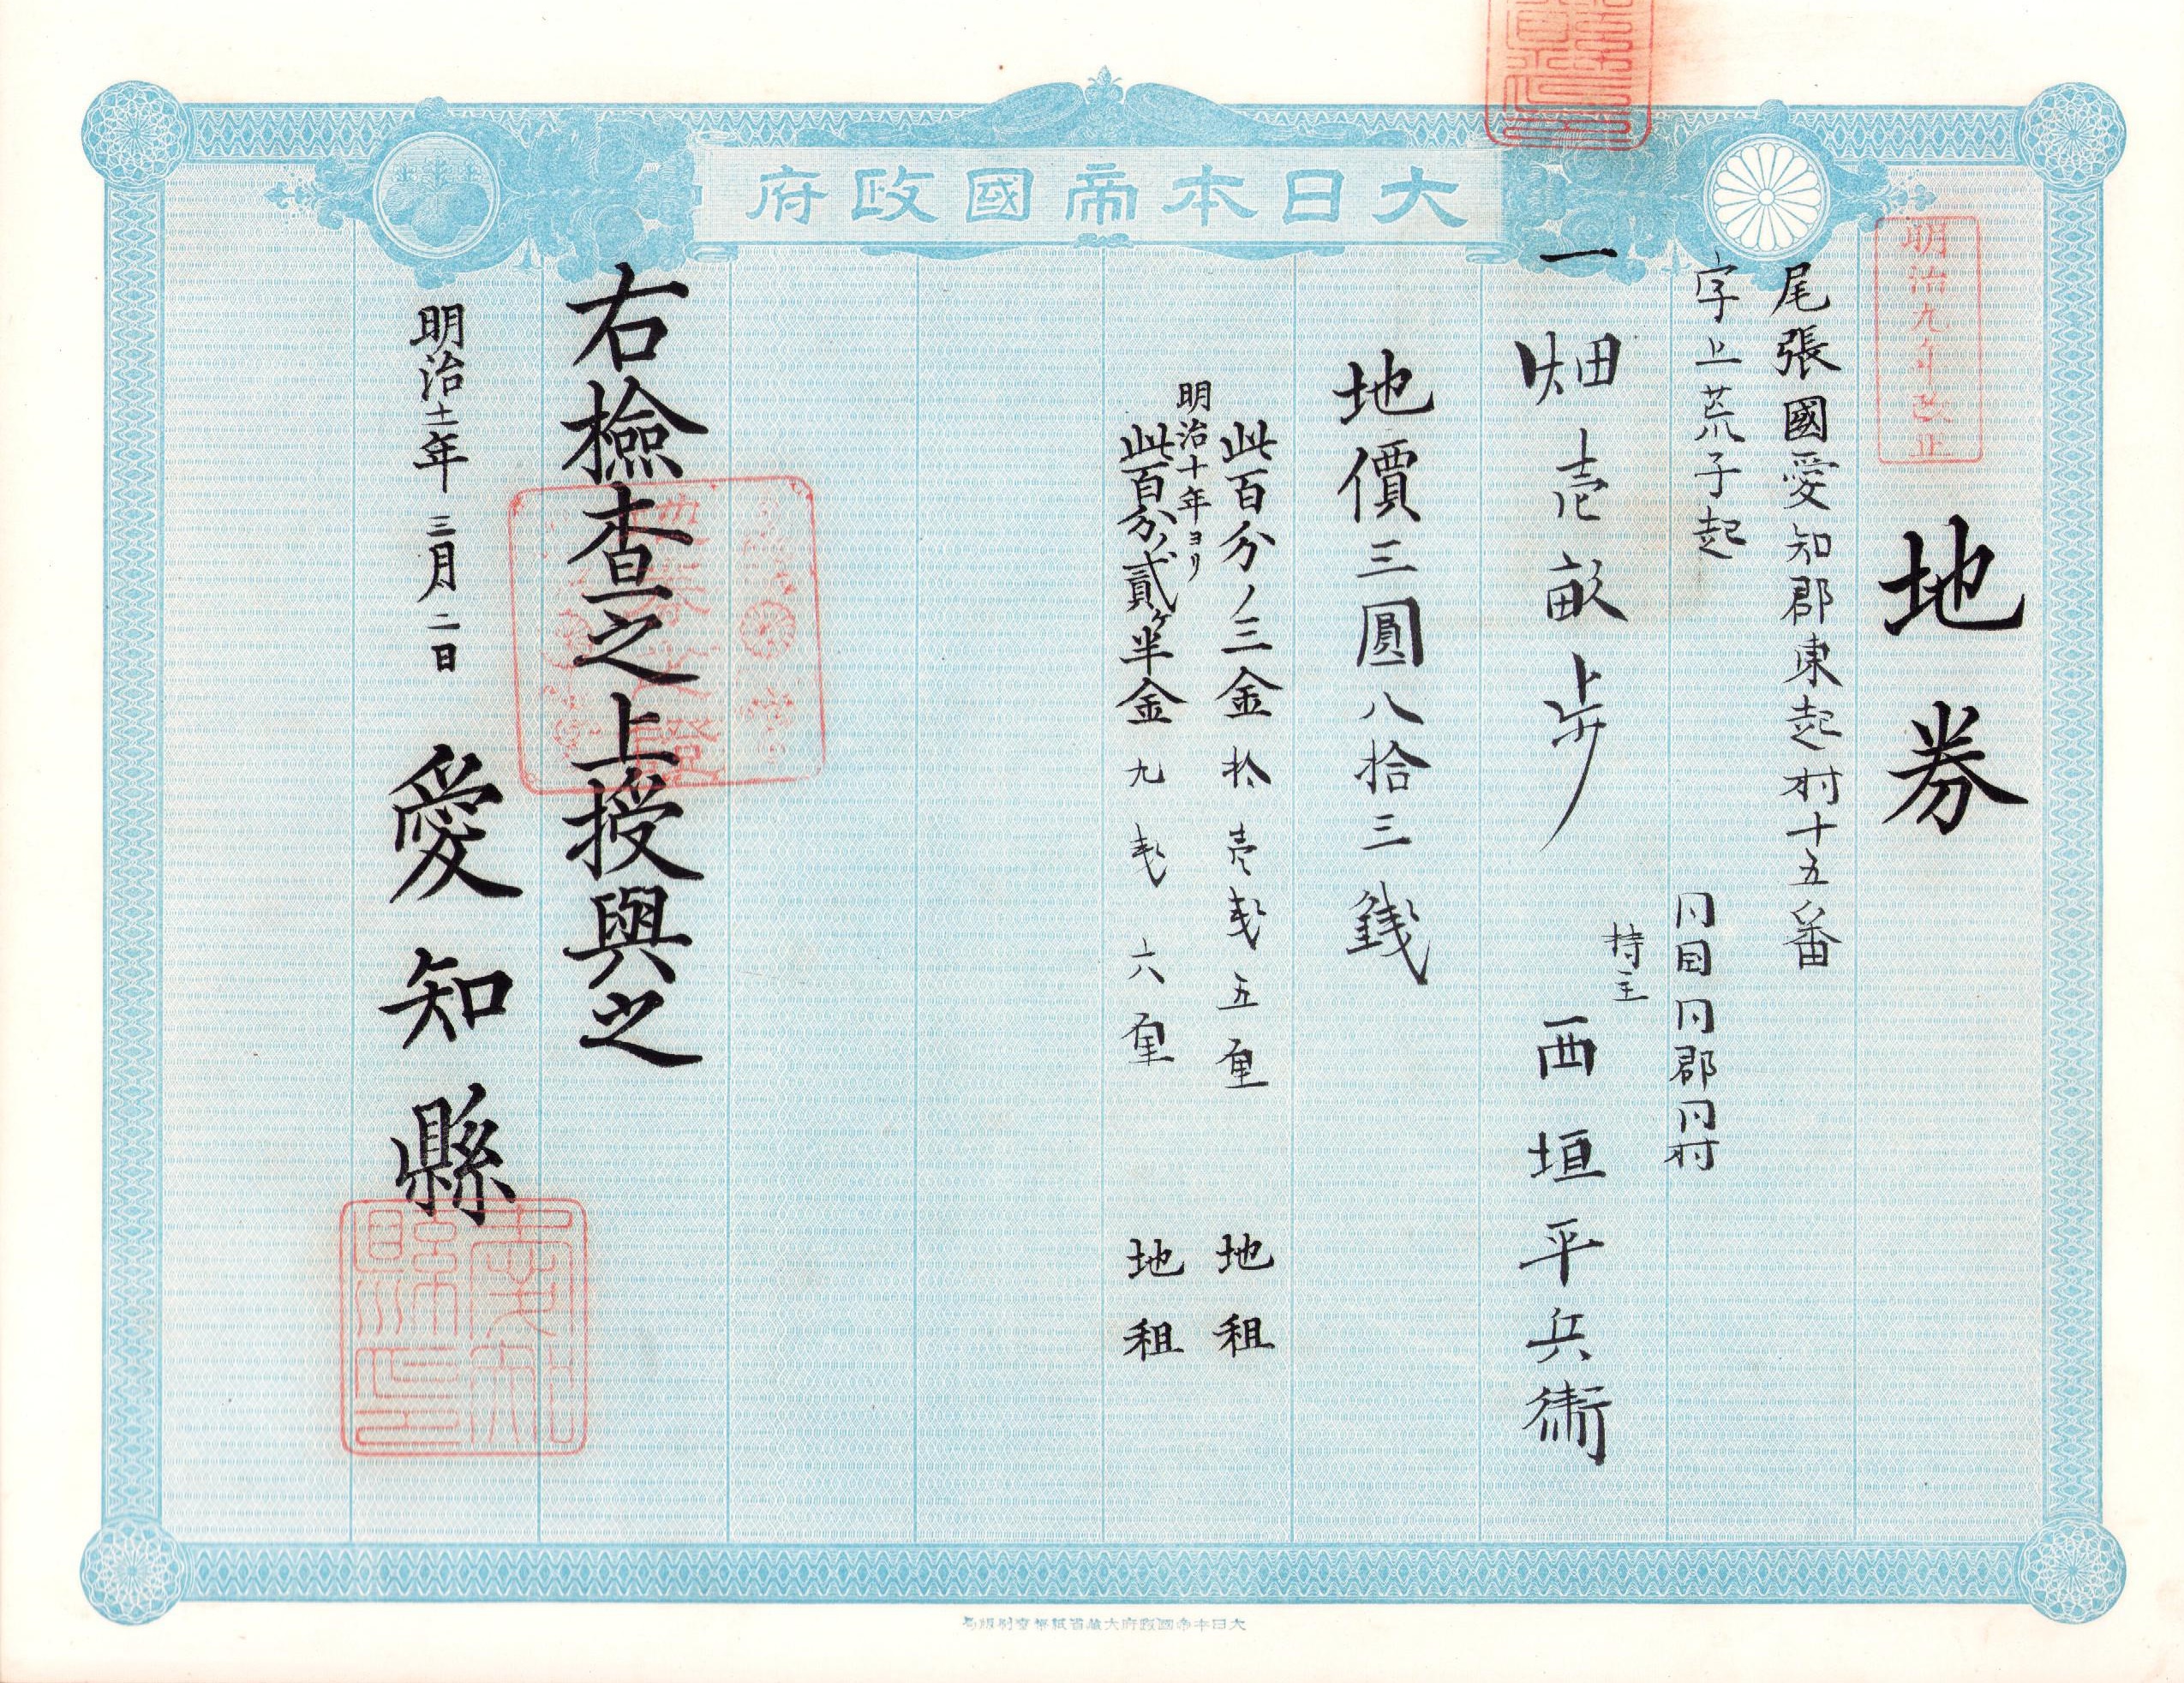 大日本帝國政府
明治九年改正
地券
尾張國愛知郡東起村十五番
字上荒子起
同国同郡同村
一畑壱畝歩
持主
西垣平兵衛
地價三圓八拾三銭
此百分ノ三金拾壱銭五厘
地租
明治十年ヨリ
此百分ノ貳ヶ半金九銭六厘
地租
右撿査之上授與之
明治十二年三月二日
愛知縣
愛知縣印
大日本帝國政府大蔵省紙幣寮刷版局